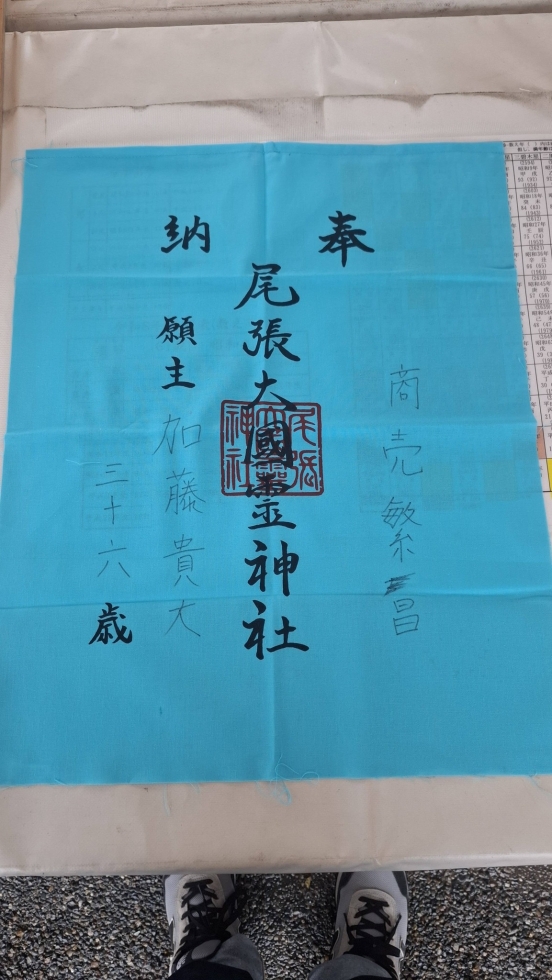 奉納
商売繁昌
尾張大國霊神社
尾張大國霊神社
願主 加藤貴大
三十六歳